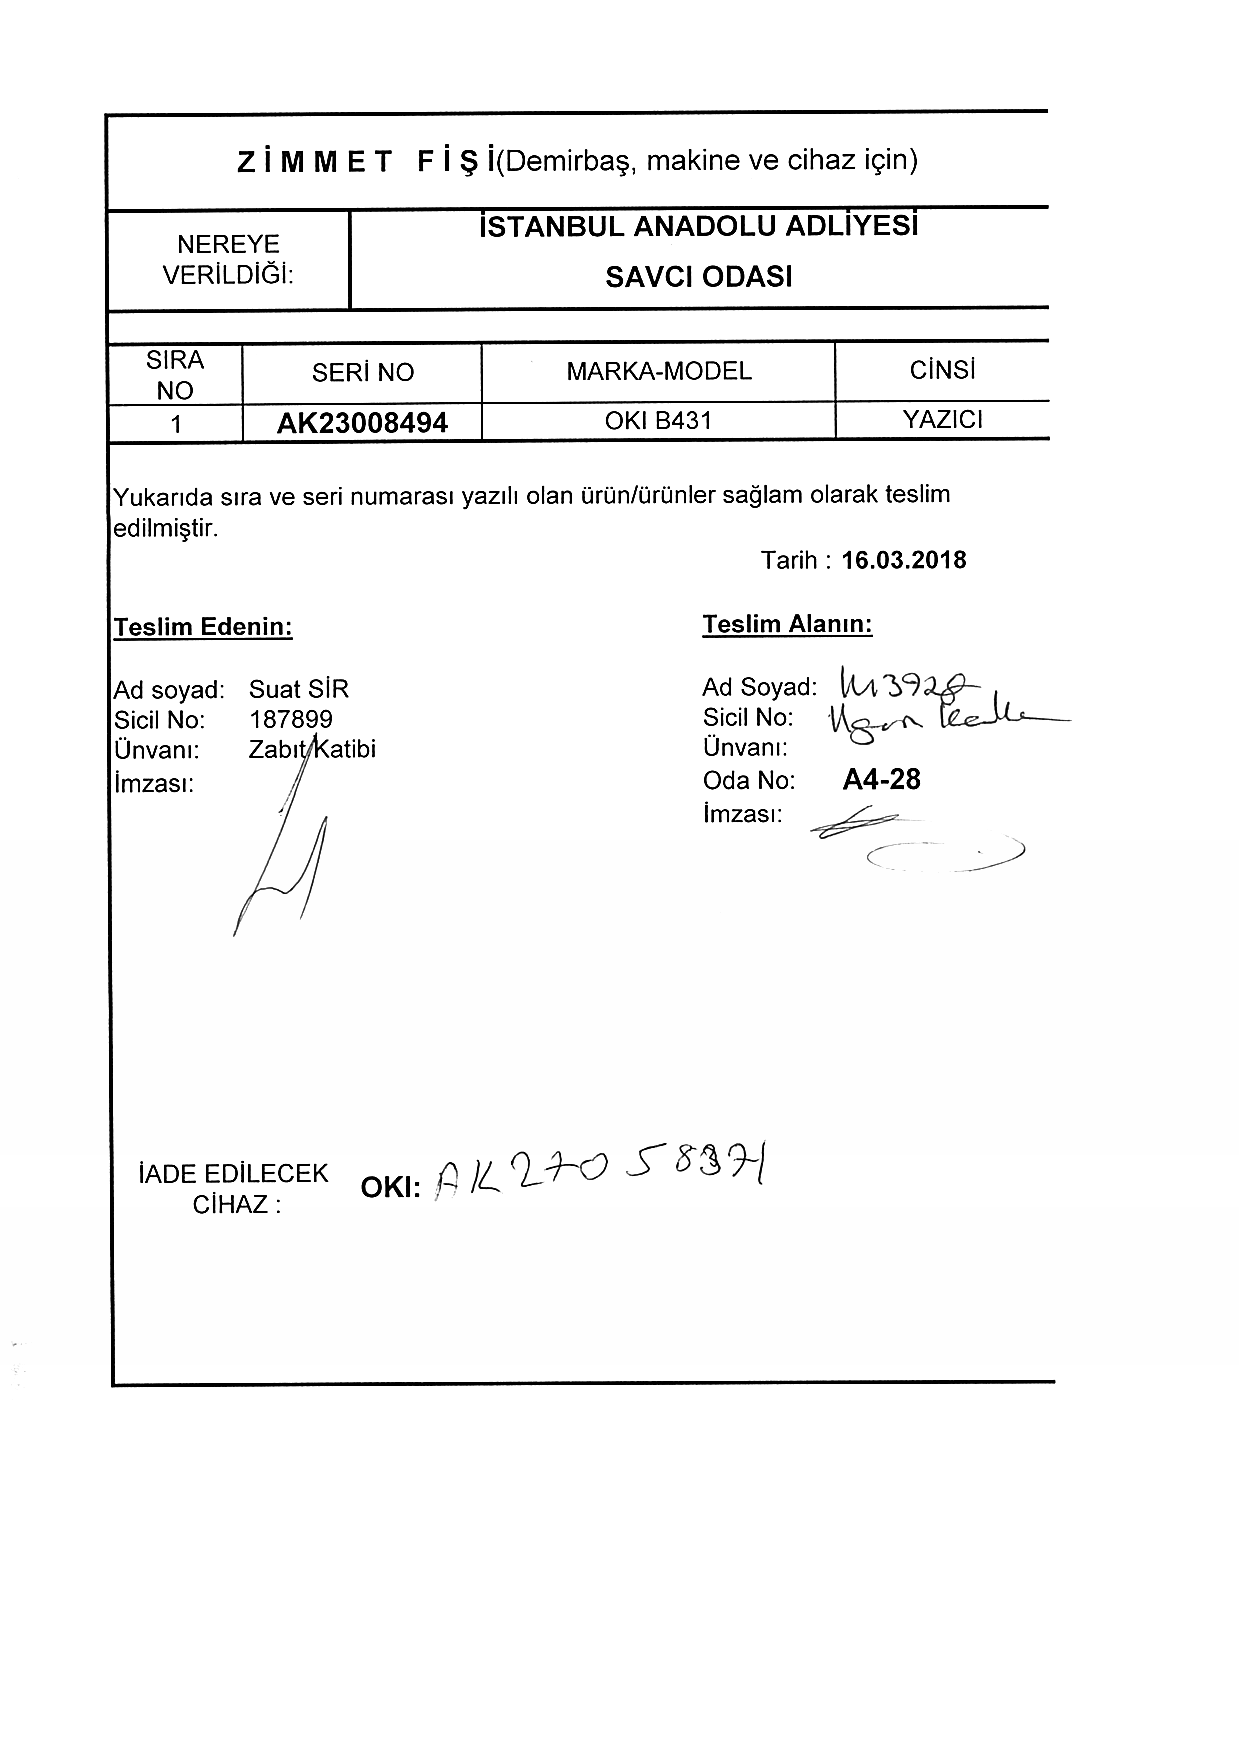 ZİMMET FİŞİ(Demirbaş, makine ve cihaz için)
NEREYE VERİLDİĞİ:
İSTANBUL ANADOLU ADLİYESİ
SAVCI ODASI
SIRA NO SERİ NO MARKA-MODEL CİNSİ
1 AK23008494 OKI B431 YAZICI
Yukarıda sıra ve seri numarası yazılı olan ürün/ürünler sağlam olarak teslim
edilmiştir.
Tarih : 16.03.2018
Teslim Edenin: Teslim Alanın:
Ad soyad: Suat SİR Ad Soyad:
Sicil No: 187899 Sicil No:
Ünvanı: Zabıt Katibi Ünvanı:
Oda No: A4-28
İmzası: İmzası:
İADE EDİLECEK
CİHAZ :
OKI: AK27058371